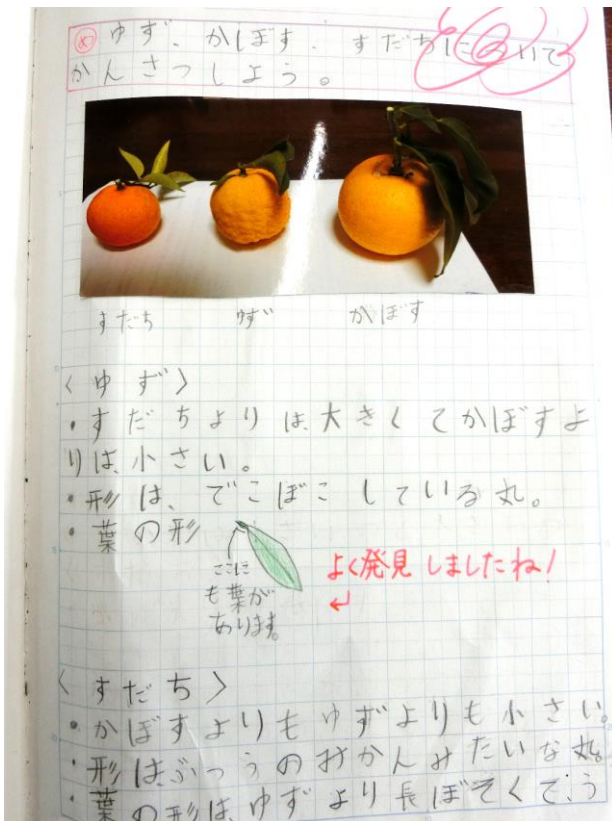 め ゆず、かぼす、すだちについて
かんさつしよう。
すだち ゆず かぼす
<ゆず>
・すだちよりは、大きくてかぼすよ
りは、小さい。
・形は、でこぼこしている丸。
・葉の形
ここに
も葉が
あります。
よく発見しましたね!
<すだち>
・かぼすよりもゆずよりも小さい。
・形はふつうのみかんみたいな丸。
・葉の形は、ゆずより長ぼそくて、う